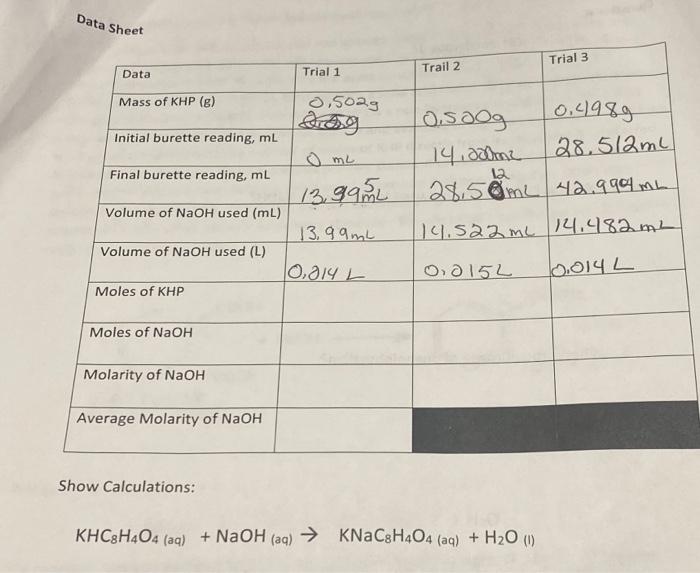 Data Sheet
Data Trial 1 Trail 2 Trial 3
Mass of KHP (g) 0.502g 0.500g 0.498g
Initial burette reading, mL 0 mL 28.512mL
Final burette reading, mL 13.995mL 28.512mL 42.994mL
Volume of NaOH used (mL) 13.99mL 14.522mL 14.482mL
Volume of NaOH used (L) 0.014 L 0.015L 0.014 L
Moles of KHP
Moles of NaOH
Molarity of NaOH
Average Molarity of NaOH
Show Calculations:
KHC₈H₄O₄ (aq) + NaOH (aq) → KNaC₈H₄O₄ (aq) + H₂O (l)